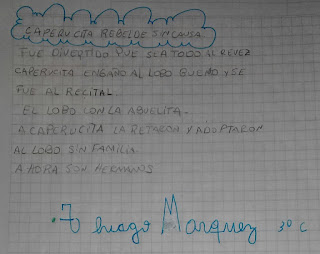 CAPERUCITA REBELDE SIN CAUSA
FUE DIVERTIDO QUE SEA TODO AL REVEZ
CAPERUCITA ENGAÑO AL LOBO BUENO Y SE
FUE AL RECITAL.
EL LOBO CON LA ABUELITA.
A CAPERUCITA LA RETARON Y ADOPTARON
AL LOBO SIN FAMILIA.
AHORA SON HERMANOS
Thiago Marquez 3º C